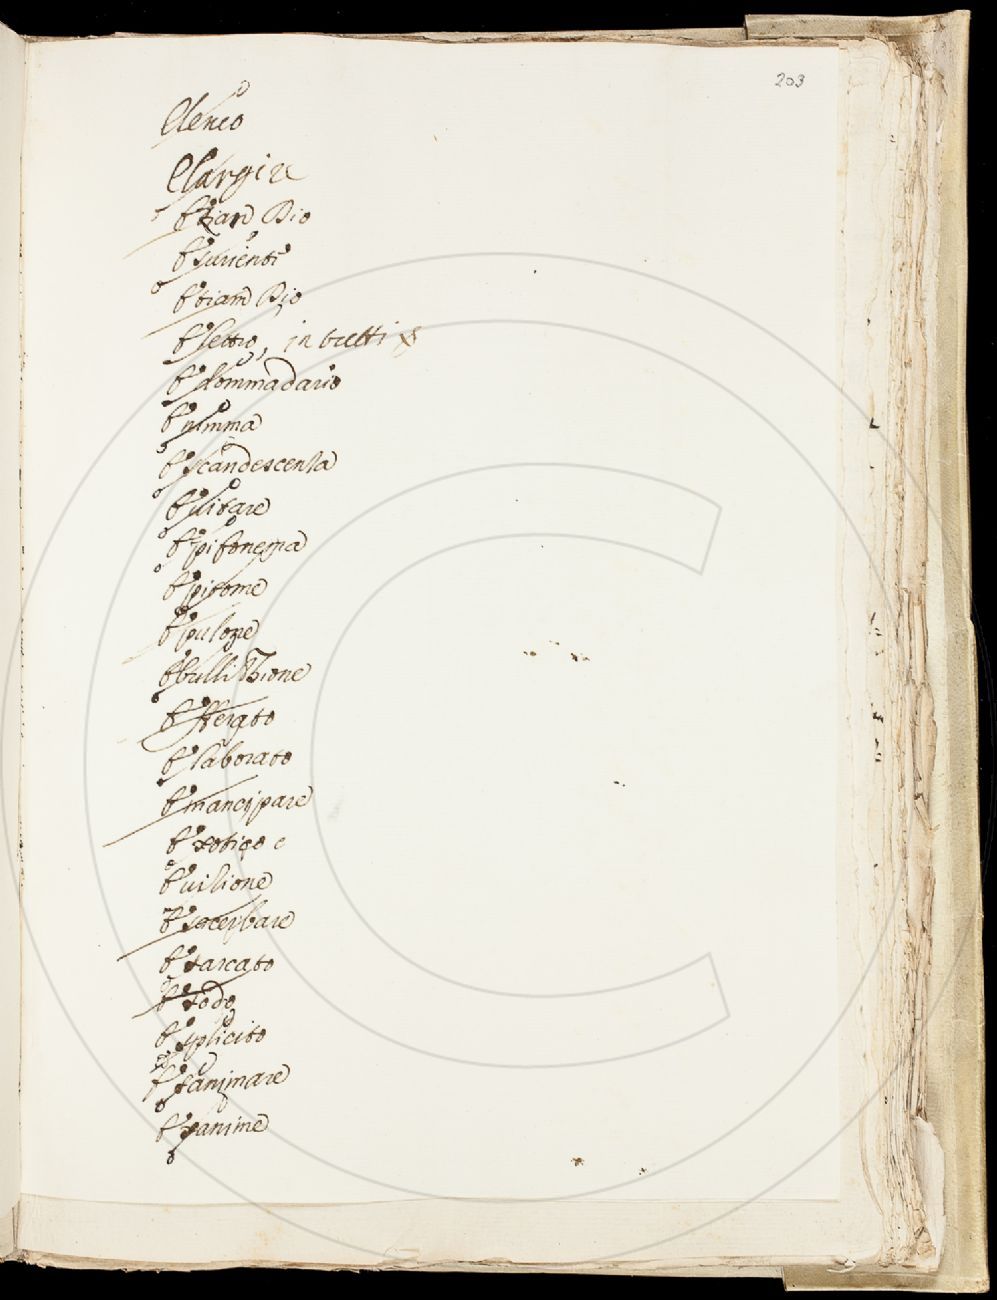 203
Elenco
Elargire
Etian Dio
Esurienti
Etiam Dio
Eletto, in tutti
Eddommadario
Enimma
Escandescenza
Euitare
Epifonema
Epitome
Epulone
Ebullizione
Efferato
Elaborato
Emancipare
Exotico
Euisione
Esacerbare
Exarcato
Exodo
Esplicito
Exanimare
Exanime